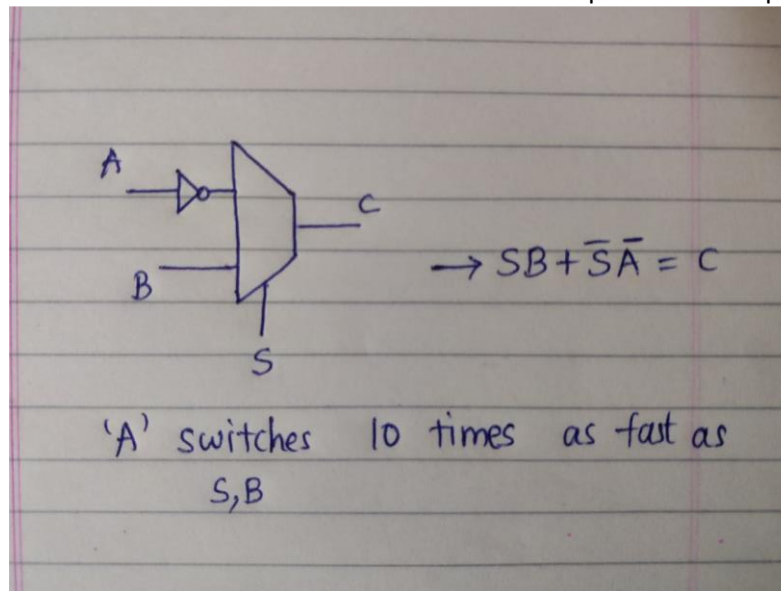 A
C
→ SB + S̅A̅ = C
B
S
'A' switches 10 times as fast as
S,B